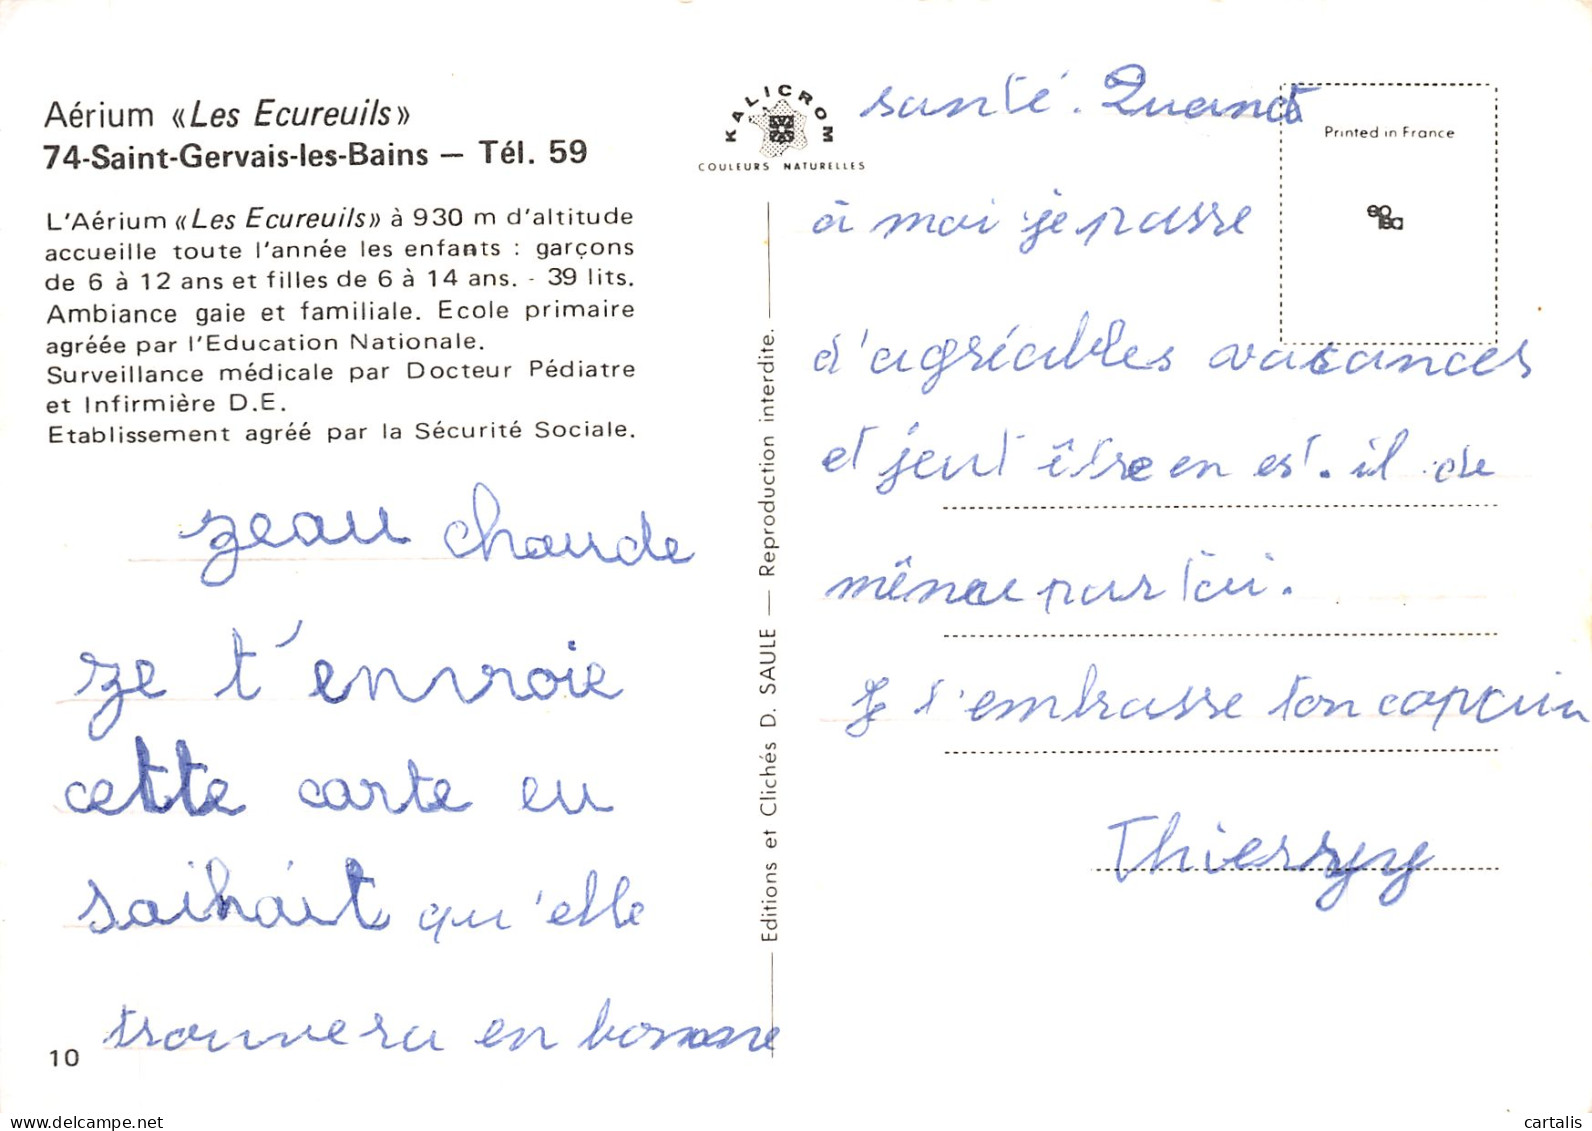 Aérium «Les Ecureuils»
74-Saint-Gervais-les-Bains — Tél. 59
L'Aérium «Les Ecureuils» à 930 m d'altitude
accueille toute l'année les enfants : garçons
de 6 à 12 ans et filles de 6 à 14 ans. - 39 lits.
Ambiance gaie et familiale. Ecole primaire
agréée par l'Education Nationale.
Surveillance médicale par Docteur Pédiatre
et Infirmière D.E.
Etablissement agréé par la Sécurité Sociale.
zeau chaude
ze t'envoie
cette carte eu
saihait qu'elle
trouvera en bonne
10
KALICROM
COULEURS NATURELLES
Editions et Clichés D. SAULE — Reproduction interdite.
Printed in France
santé. Quand
à moi je passe
d'agréables vacances
et jeut être en est. il de
même par toi.
Je t'embrasse ton copain
Thierry
delcampe.net
cartalis